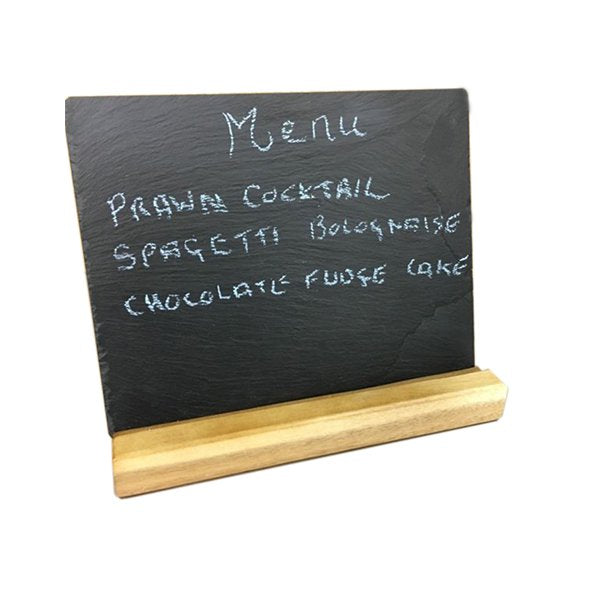 Menu
PRAWN COCKTAIL
SPAGETTI BOLOGNAISE
CHOCOLATE FUDGE CAKE